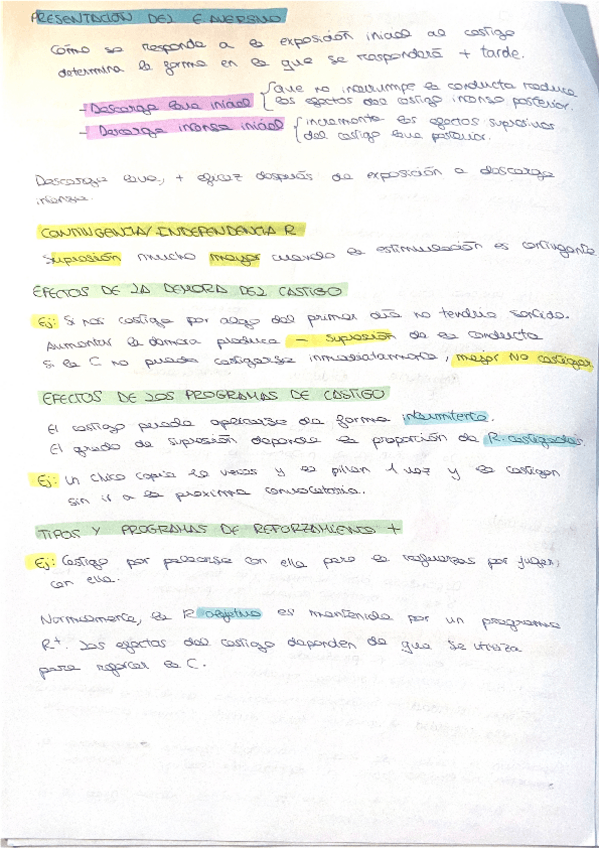 PRESENTACIÓN DEL E. AVERSIVO
Cómo se responde a la exposición inicial al castigo
determina la forma en la que se responderá + tarde.
- Descarga leve inicial { que no interrumpe la conducta reduce
los efectos del castigo intenso posterior.
- Descarga intensa inicial { incrementa los efectos supresivos
del castigo leve posterior.
Descarga leve, + eficaz después de exposición a descarga
intensa.
CONTINGENCIA/INDEPENDENCIA R
Supresión mucho mayor cuando la estimulación es contingente
EFECTOS DE LA DEMORA DEL CASTIGO
Ej: Si nos castiga por algo del primer día no tendría sentido.
Aumentar la demora produce - supresión de la conducta
Si la C no puede castigarse inmediatamente, mejor NO castigar
EFECTOS DE LOS PROGRAMAS DE CASTIGO
El castigo puede aplicarse de forma intermitente.
El grado de supresión depende la proporción de R. castigadas.
Ej: Un chico copia 20 veces y le pillan 1 vez y le castigan
sin ir a la próxima convocatoria.
TIPOS Y PROGRAMAS DE REFORZAMIENTO +
Ej: Castigo por pelearse con ella pero le refuerzas por jugar
con ella.
Normalmente, la R objetivo es mantenida por un programa
R+. Los efectos del castigo dependen de que se utiliza
para reforzar la C.